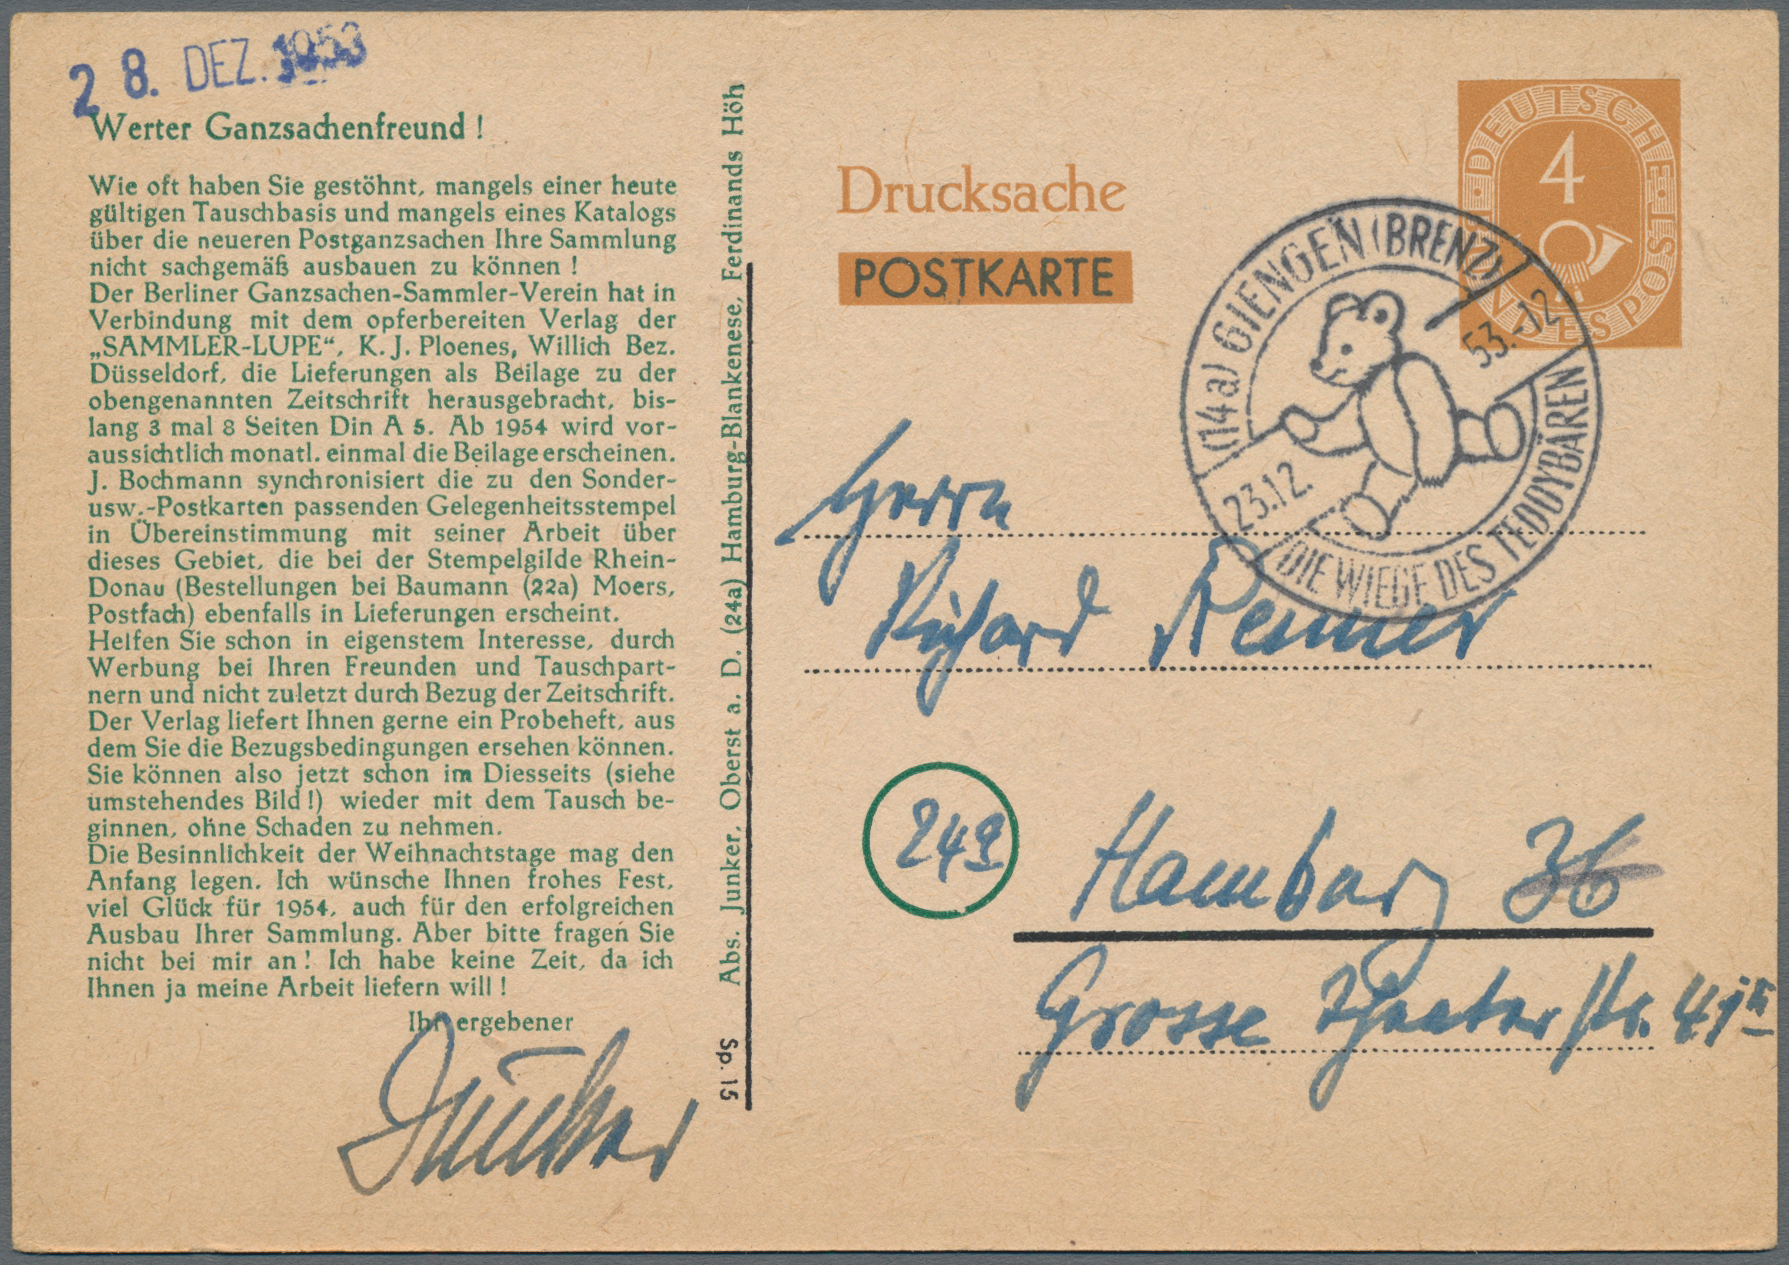 28. DEZ. 1953
Werter Ganzsachenfreund !
Wie oft haben Sie gestöhnt, mangels einer heute
gültigen Tauschbasis und mangels eines Katalogs
über die neueren Postganzsachen Ihre Sammlung
nicht sachgemäß ausbauen zu können !
Der Berliner Ganzsachen-Sammler-Verein hat in
Verbindung mit dem opferbereiten Verlag der
„SAMMLER-LUPE“, K. J. Ploenes, Willich Bez.
Düsseldorf, die Lieferungen als Beilage zu der
obengenannten Zeitschrift herausgebracht, bis-
lang 3 mal 8 Seiten Din A 5. Ab 1954 wird vor-
aussichtlich monatl. einmal die Beilage erscheinen.
J. Bochmann synchronisiert die zu den Sonder-
usw.-Postkarten passenden Gelegenheitsstempel
in Übereinstimmung mit seiner Arbeit über
dieses Gebiet, die bei der Stempelgilde Rhein-
Donau (Bestellungen bei Baumann (22a) Moers,
Postfach) ebenfalls in Lieferungen erscheint.
Helfen Sie schon in eigenstem Interesse, durch
Werbung bei Ihren Freunden und Tauschpart-
nern und nicht zuletzt durch Bezug der Zeitschrift.
Der Verlag liefert Ihnen gerne ein Probeheft, aus
dem Sie die Bezugsbedingungen ersehen können.
Sie können also jetzt schon im Diesseits (siehe
umstehendes Bild!) wieder mit dem Tausch be-
ginnen, ohne Schaden zu nehmen.
Die Besinnlichkeit der Weihnachtstage mag den
Anfang legen. Ich wünsche Ihnen frohes Fest,
viel Glück für 1954, auch für den erfolgreichen
Ausbau Ihrer Sammlung. Aber bitte fragen Sie
nicht bei mir an! Ich habe keine Zeit, da ich
Ihnen ja meine Arbeit liefern will !
Ihr ergebener
Junker
Abs. Junker, Oberst a. D. (24a) Hamburg-Blankenese, Ferdinands Höh
Sp. 15
Drucksache
POSTKARTE
DEUTSCHE BUNDESPOST
4
(14a) GIENGEN (BRENZ)
23.12.
53.-12
DIE WIEGE DES TEDDYBÄREN
Herrn
Richard Renner
24a
Hamburg 36
Grosse Theaterstr. 41